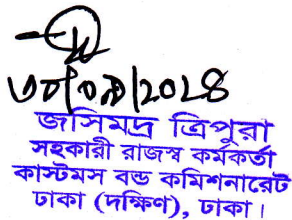 ৩০/০৯/২০২৪
জসিমদ্র ত্রিপুরা
সহকারী রাজস্ব কর্মকর্তা
কাস্টমস বন্ড কমিশনারেট
ঢাকা (দক্ষিণ), ঢাকা।